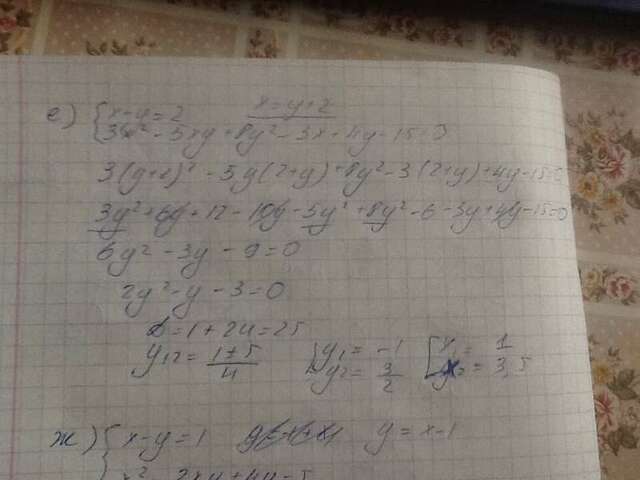 е) {x-y=2 x=y+2
3x²-5xy+8y²-3x+4y-15=0
3(y+2)²-5y(2+y)+8y²-3(2+y)+4y-15=0
3y²+6y+12-10y-5y²+8y²-6-3y+4y-15=0
6y²-3y-9=0
2y²-y-3=0
D=1+24=25
y₁₂=(1±5)/4 {y₁=-1 [x₁=1
y₂=3/2 x₂=3,5
ж) {x-y=1 y=x-1
x²-2xy+4y-5